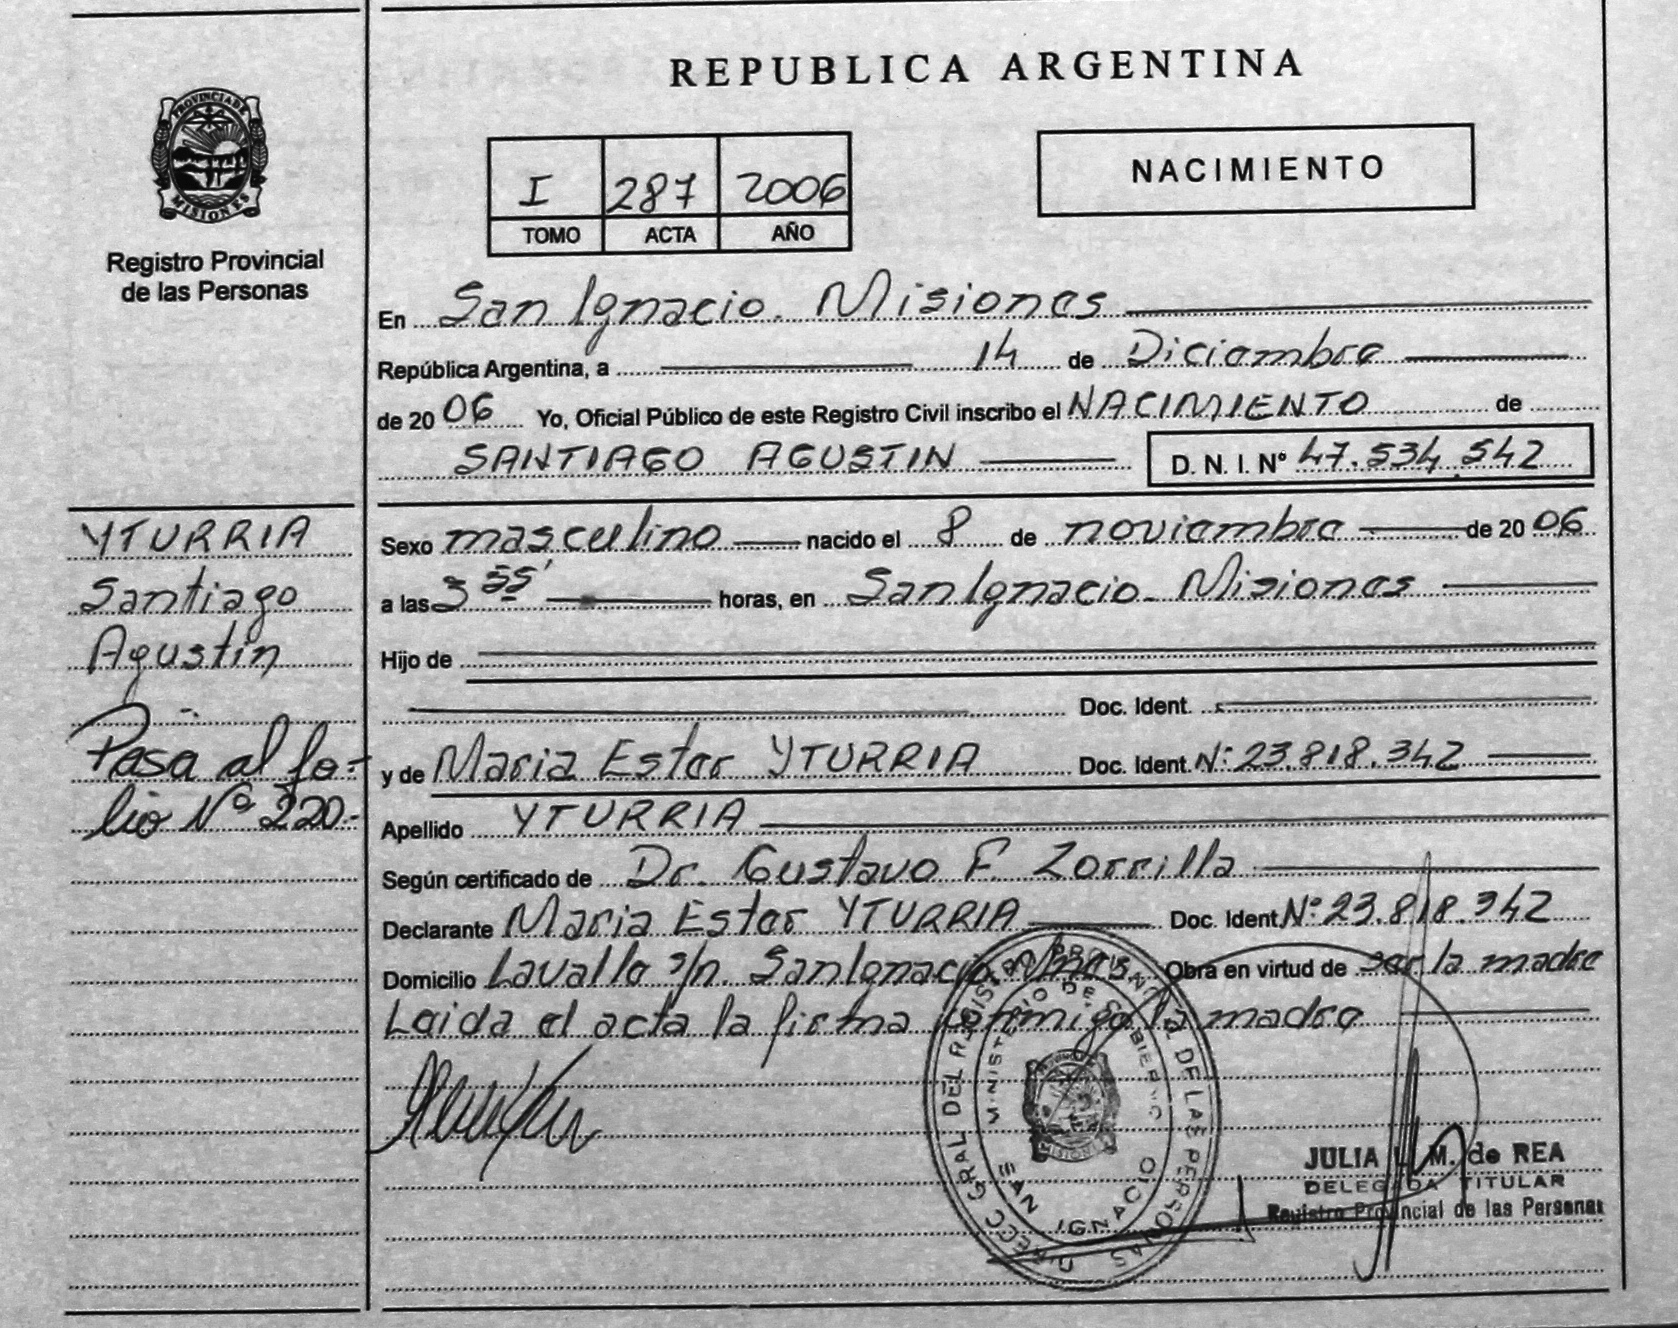 REPUBLICA ARGENTINA
PROVINCIA DE
MISIONES
Registro Provincial
de las Personas
I 287 2006
TOMO ACTA AÑO
NACIMIENTO
En San Ignacio. Misiones
República Argentina, a 14 de Diciembre
de 20 06 Yo, Oficial Público de este Registro Civil inscribo el NACIMIENTO de
SANTIAGO AGUSTIN D. N. I. Nº 47.534.542
YTURRIA
Santiago
Agustin
Pasa al fo-
lio Nº 220.-
Sexo masculino nacido el 8 de noviembre de 20 06
a las 3 55' horas, en San Ignacio. Misiones
Hijo de
Doc. Ident.
y de Maria Ester YTURRIA Doc. Ident. Nº 23.818.342
Apellido YTURRIA
Según certificado de Dr. Gustavo F. Zorrilla
Declarante Maria Ester YTURRIA Doc. Ident. Nº 23.818.342
Domicilio Lavalle s/n. San Ignacio Mnes. Obra en virtud de ser la madre
Leida el acta la firma conmigo la madre
DIRECC GRAL DEL REGISTRO PROVINCIAL DE LAS PERSONAS
MINISTERIO DE GOBIERNO
SAN IGNACIO
MISIONES
JULIA M. de REA
DELEGADA TITULAR
Registro Provincial de las Personas